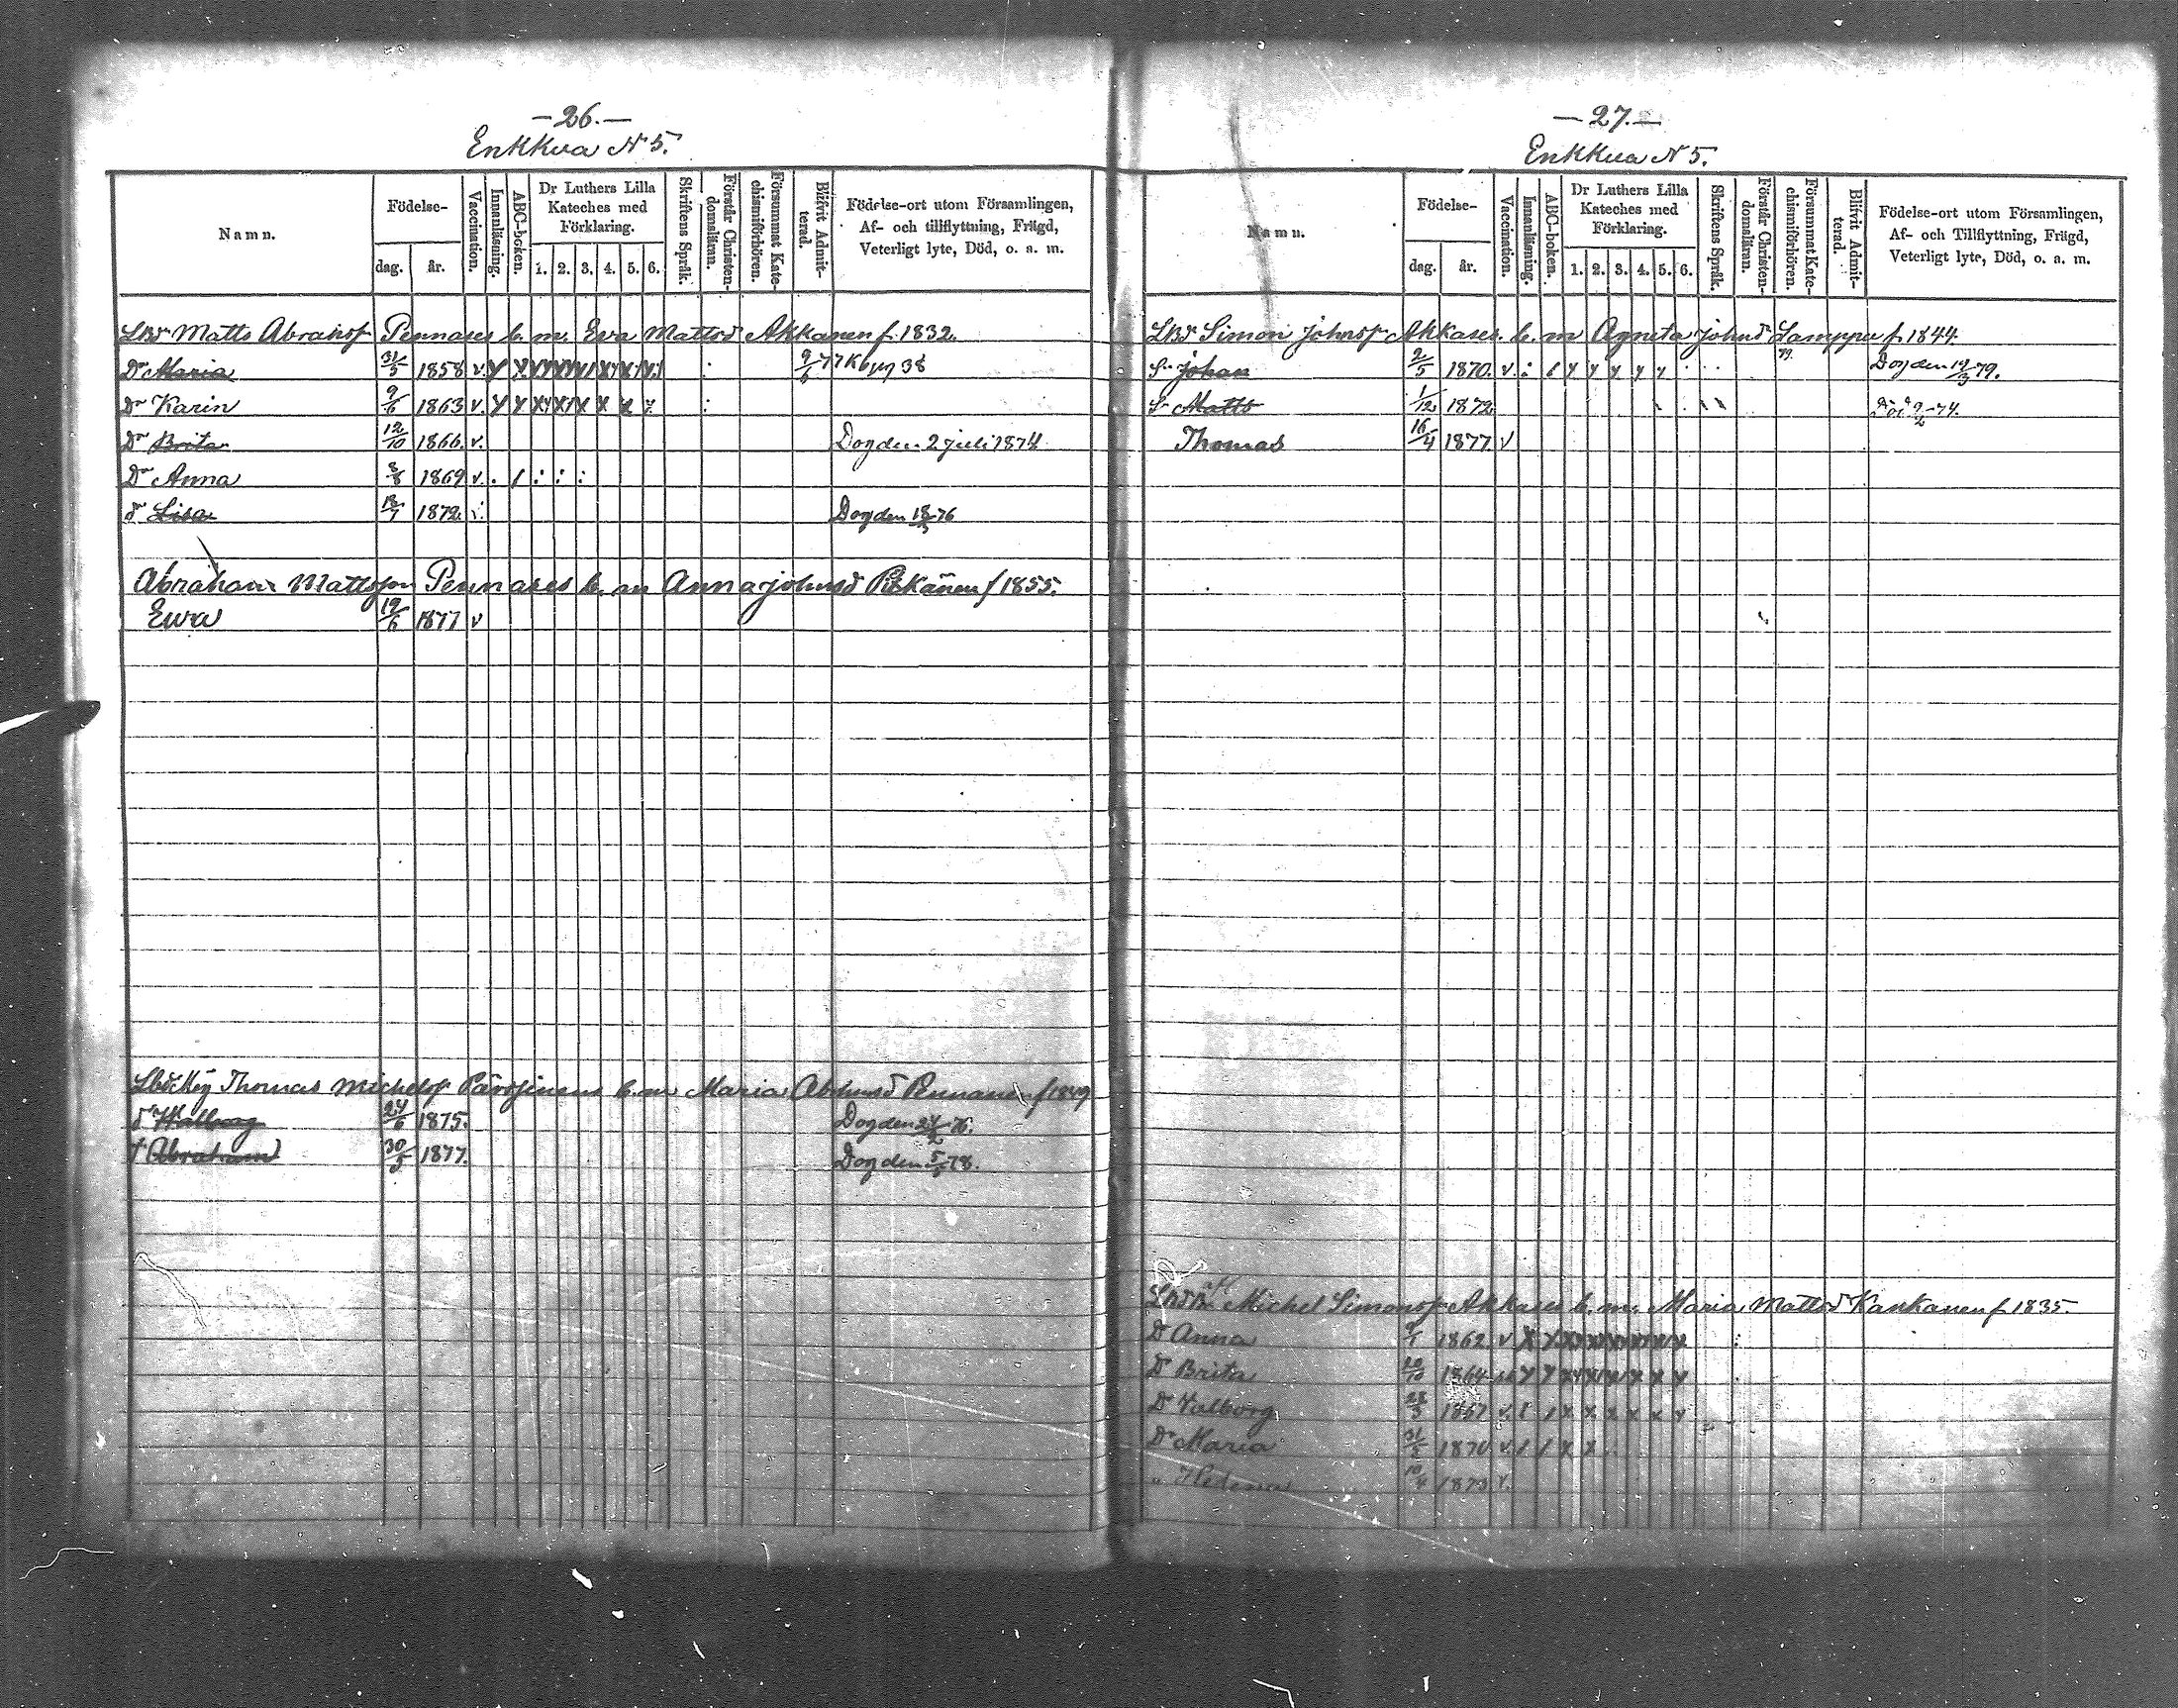 — 26. —
Enkkua N 5.
Namn.
Födelse-
dag.
år.
Vaccination.
Innanläsning.
ABC-boken.
Dr Luthers Lilla
Kateches med
Förklaring.
1. 2. 3. 4. 5. 6.
Skriftens Språk.
Förstår Christen-
domslänn.
Försummat Kate-
chismiförhören.
Blifvit Admit-
terad.
Födelse-ort utom Församlingen,
Af- och tillflyttning, Frägd,
Veterligt lyte, Död, o. a. m.
Matts Abrahsf Pennases b. m. Eva Mattsd Akkanen f. 1832.
Dr Maria 31/5 1858 v. 9/6 77
Dr Karin 9/6 1863 v.
Dr Brita 12/10 1866. v. Dog den 2 juli 1874
Dr Anna 1869 v.
dr Lisa 1872. Dog den 76
Abraham Mattsson Pennases b. m Anna johnsd f 1855.
Ewa 19/6 1877 v
Thomas Michelsf b. m Maria f 1849
dr Walborg 24/6 1875. Dog den 76.
Abraham 30/5 1877. Dog den 78.
— 27. —
Enkkua N 5.
Namn.
Födelse-
dag.
år.
Vaccination.
Innanläsning.
ABC-boken.
Dr Luthers Lilla
Kateches med
Förklaring.
1. 2. 3. 4. 5. 6.
Skriftens Språk.
Förstår Christen-
domsläran.
Försummat Kate-
chismiförhören.
Blifvit Admit-
terad.
Födelse-ort utom Församlingen,
Af- och Tillflyttning, Frägd,
Veterligt lyte, Död, o. a. m.
Simon Johnsf Akkases. b. m Agneta Johnsd Lamppu f 1844.
Sn Johan 2/5 1870. v. Dog den 79.
Sn Matts 1/12 1872 74.
Thomas 16/4 1877. v
Michel Simonsf Akkases b. m. Maria Mattsd Kankanen f. 1835.
Dr Anna 1862. v
Dr Brita 1864
Dr Valborg 1867 v.
Dr Maria 1870 v
" Helena 1873 v.